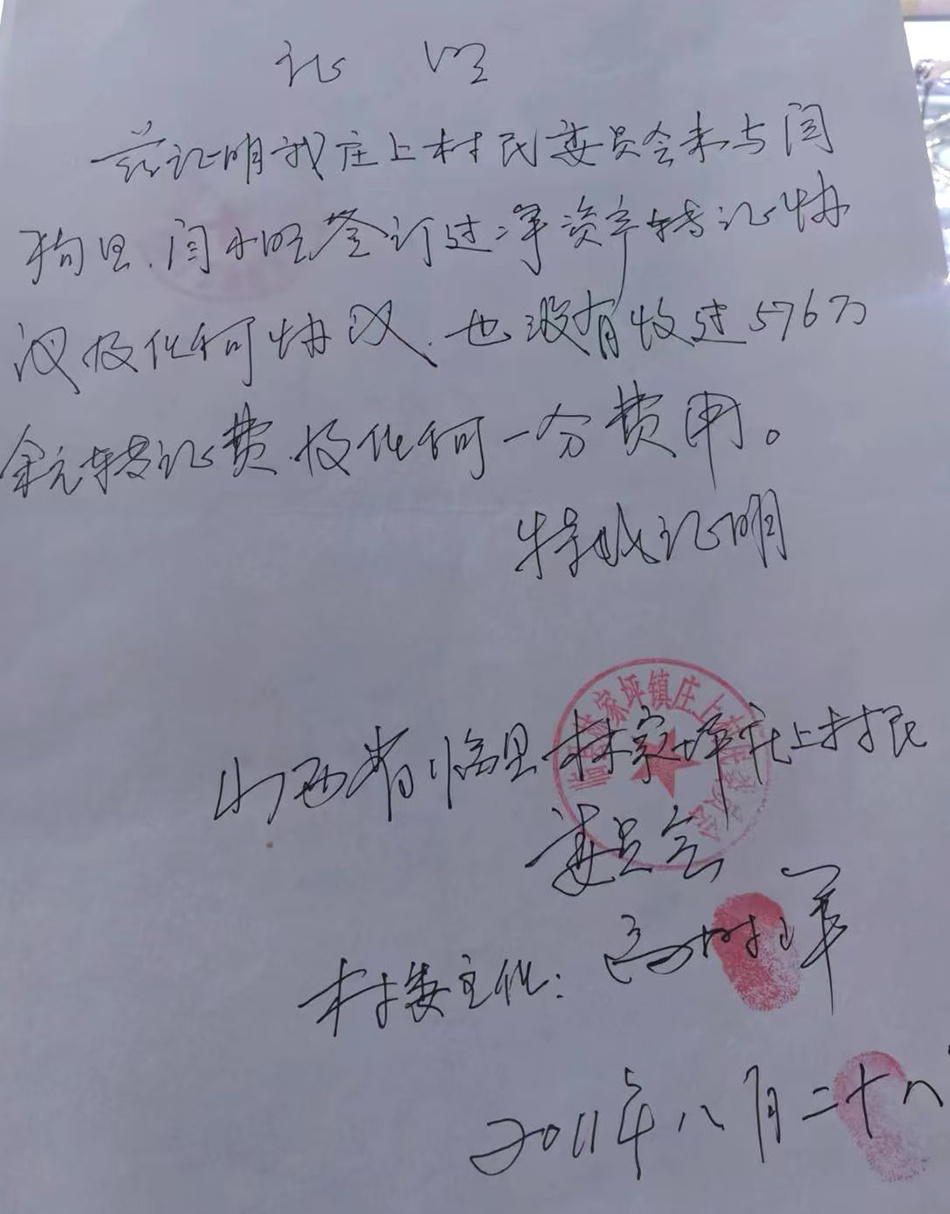 证 明
兹证明我庄上村民委员会未与闫
狗旦、闫小旺签订过净资产转让协
议及任何协议、也没有收过576万
余元转让费、及任何一分费用。
特此证明
山西省临县林家坪庄上村民
委员会
村委主任：高 军
2011年八月二十八
林家坪镇庄上村
委员会